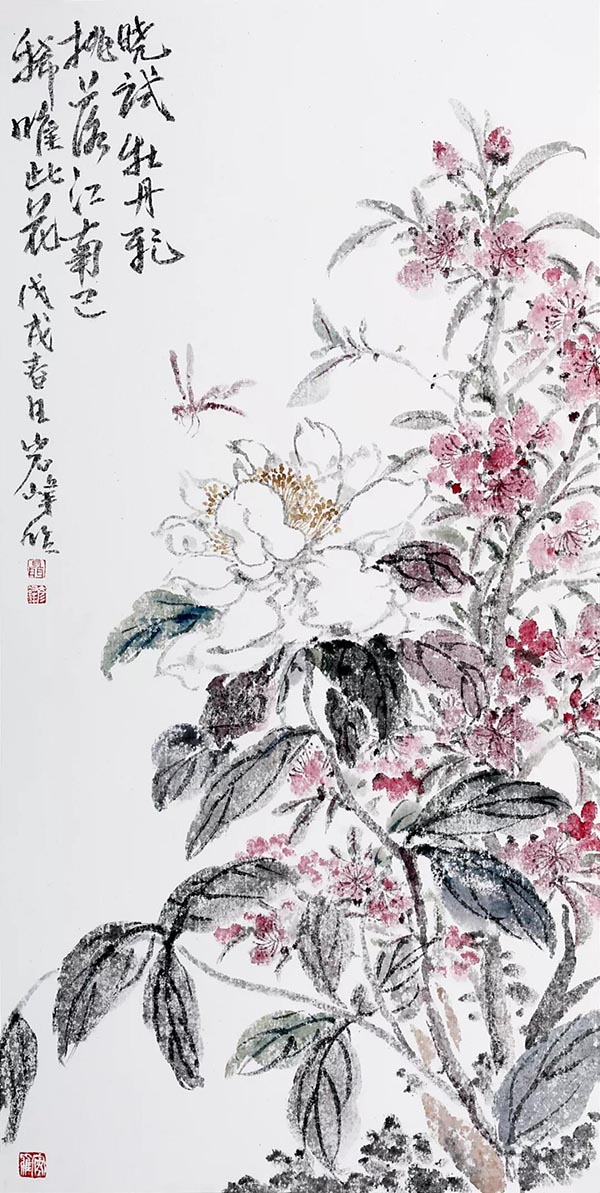 晓试牡丹
桃落江南已
稀唯此花
戊戌春日岩峰作